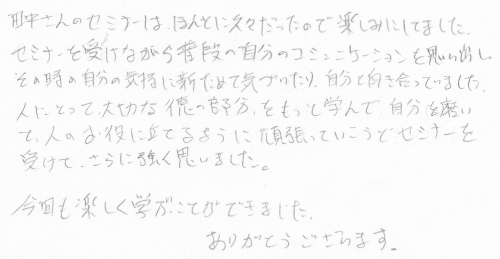 田中さんのセミナーは、ほんとに久々だったので楽しみにしてました。
セミナーを受けながら普段の自分のコミュニケーションを思い出し、
その時の自分の気持に新ためて気づいたり、自分と向き合っていました。
人にとって、大切な徳の部分、をもっと学んで、自分を磨い
て、人のお役に立てるように頑張っていこうとセミナーを
受けて、さらに強く思いました。
今回も楽しく学ぶことができました。
ありがとうございます。